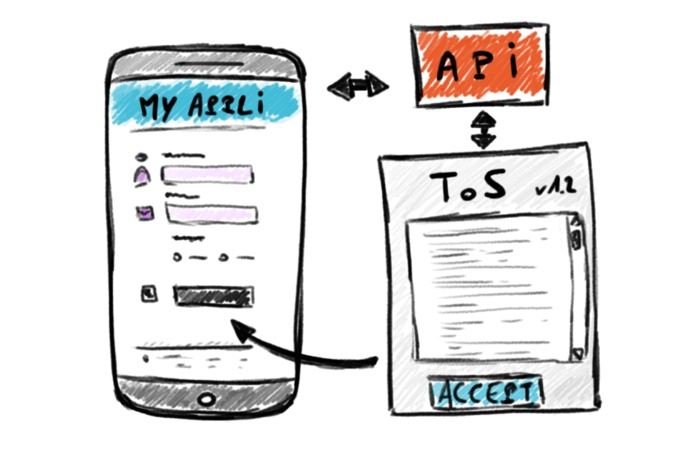 MY APPLi
APi
ToS v1.2
ACCEPT